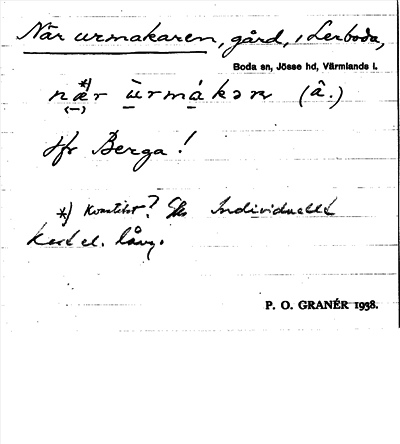 När urmakaren, gård, i Lerboda,
Boda sn, Jösse hd, Värmlands l.
*)
nær ùrmákaren (â.)
(–)
Jfr Berga!
*) Kvantitet? Individuellt
kort el. lång.
P. O. GRANÉR 1938.